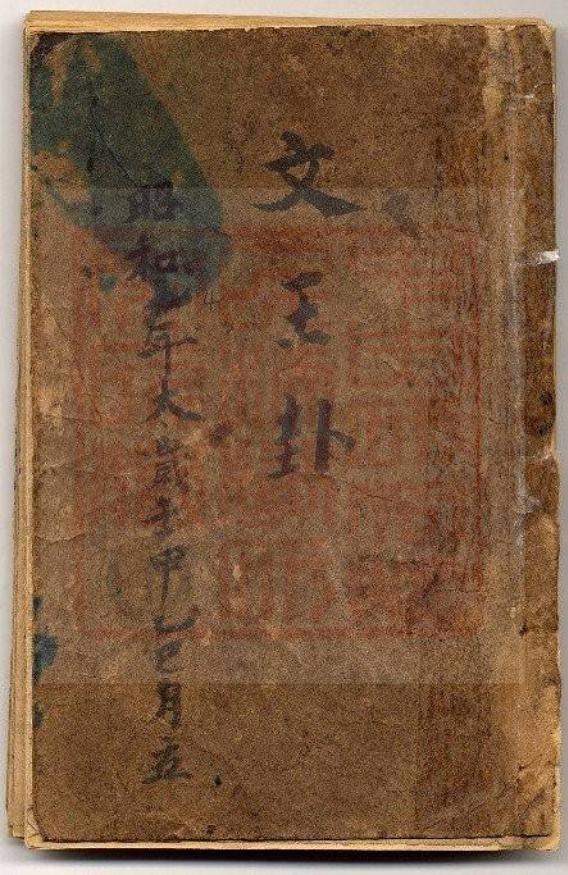 文王卦
昭和七年太歲壬申乙巳月立